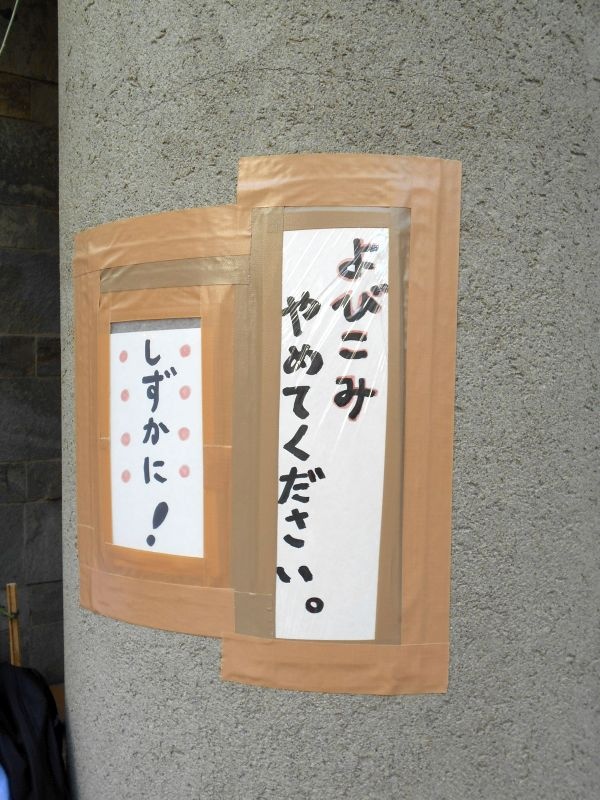 よびこみ
やめてください。
しずかに!